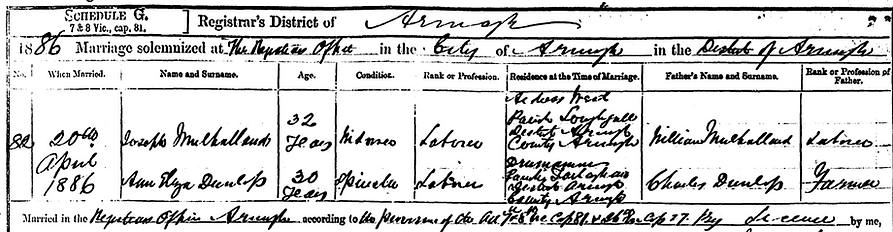 SCHEDULE G.
7 & 8 Vic., cap. 81.
Registrar's District of Armagh
1886 Marriage solemnized at The Registrars Office in the City of Armagh in the District of Armagh
No. When Married. Name and Surname. Age. Condition. Rank or Profession. Residence at the Time of Marriage. Father's Name and Surname. Rank or Profession of Father.
82 20th April 1886 Joseph Mulholland 32 Years Widower Laborer Parish Loughgall District Armagh County Armagh William Mulholland Laborer
Ann Eliza Dunlop 30 Years Spinster Laborer District Armagh County Armagh Charles Dunlop Farmer
Married in the Registrars Office Armagh according to the provisions of the Act By Licence by me,